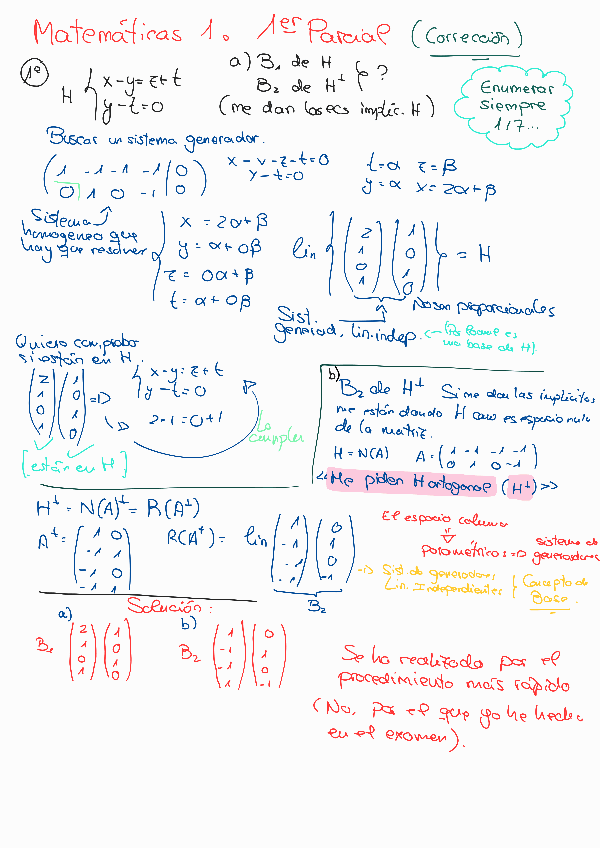 Matemáticas 1. 1er Parcial (Corrección)
1º H { x-y=z+t
y-t=0
a) B1 de H
B2 de H⊥ } ?
(me dan las ecs implíc. H)
Enumerar
siempre
1/7...
Buscar un sistema generador.
( 1 -1 -1 -1 | 0
0 1 0 -1 | 0 )
x-y-z-t=0
y-t=0
t=α z=β
y=α x=2α+β
Sistema
homogéneo que
hay que resolver
{ x = 2α+β
y = α+0β
z = 0α+β
t = α+0β
lin { (2 1 0 1) (1 0 1 0) } = H
No son proporcionales
Sist.
generad. lin. indep.
base de H)
Quiero comprobar
si están en H.
(2 1 0 1) (1 0 1 0) => { x-y=z+t
y-t=0
2-1=0+1
Lo
cumplen
[están en H]
b) B2 de H⊥ Si me dan las implícitas
me están dando H como es espacio nulo
de la matriz.
H=N(A) A=( 1 -1 -1 -1
0 1 0 -1 )
<<Me piden H ortogonal (H⊥)>>
H⊥ = N(A)⊥ = R(At)
At = ( 1 0
-1 1
-1 0
-1 -1 )
R(At) = lin (1 -1 -1 -1) (0 1 0 -1)
B2
El espacio columna
paramétricas => sistema de
generadores
=> Sist. de generadores
Lin. Independientes } Concepto de
Base.
Solución:
a) B1 (2 1 0 1) (1 0 1 0)
b) B2 (1 -1 -1 -1) (0 1 0 -1)
Se ha realizado por el
procedimiento más rápido
(No, por el que yo he hecho
en el examen).